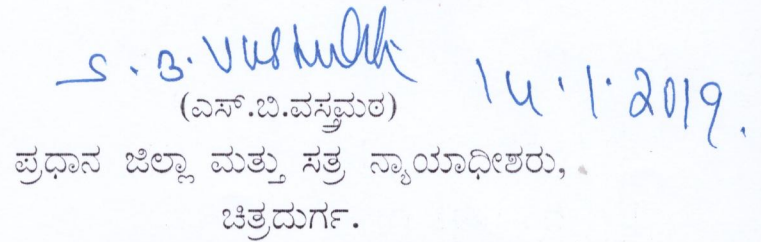 S. B. Vastrmath 14.1.2019.
(ಎಸ್.ಬಿ.ವಸ್ತ್ರಮಠ)
ಪ್ರಧಾನ ಜಿಲ್ಲಾ ಮತ್ತು ಸತ್ರ ನ್ಯಾಯಾಧೀಶರು,
ಚಿತ್ರದುರ್ಗ.